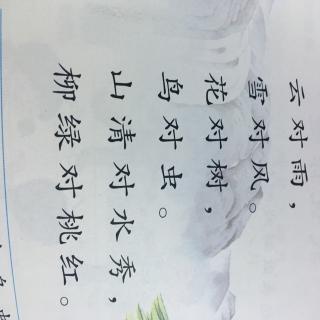 云对雨，
雪对风。
花对树，
鸟对虫。
山清对水秀，
柳绿对桃红。